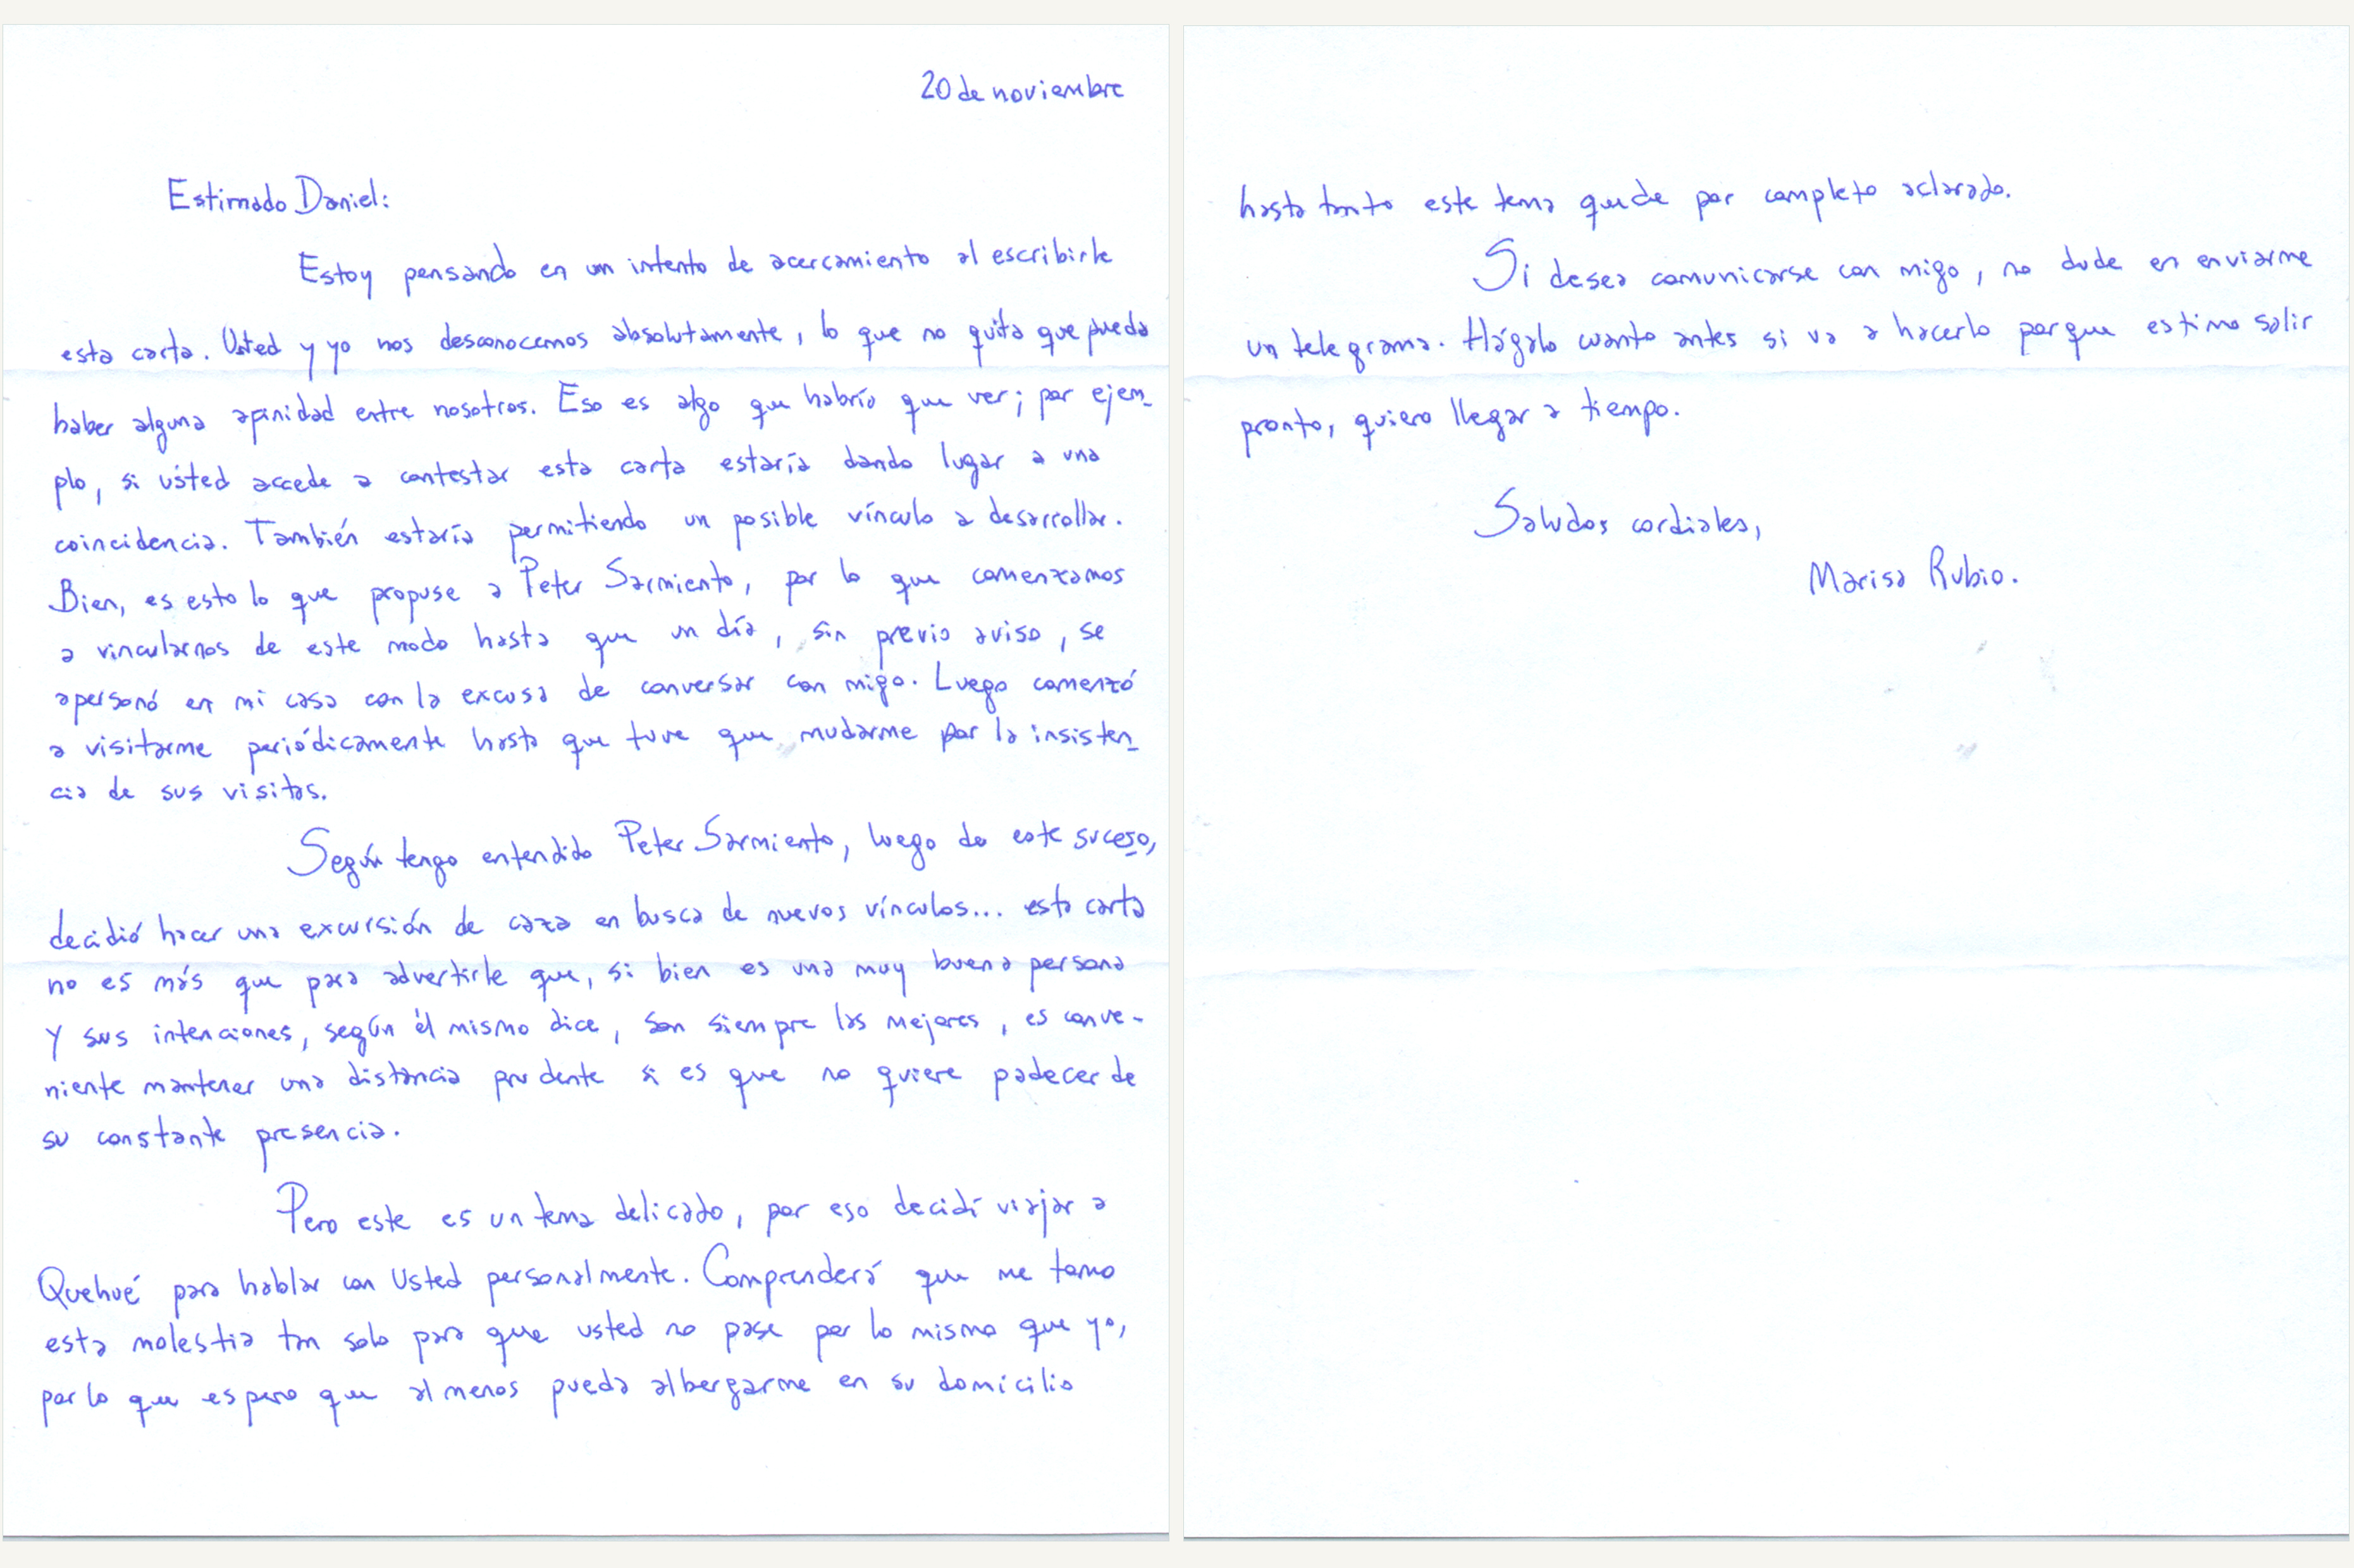 20 de noviembre
Estimado Daniel:
Estoy pensando en un intento de acercamiento al escribirle
esta carta. Usted y yo nos desconocemos absolutamente, lo que no quita que pueda
haber alguna afinidad entre nosotros. Eso es algo que habría que ver; por ejem-
plo, si usted accede a contestar esta carta estaría dando lugar a una
coincidencia. También estaría permitiendo un posible vínculo a desarrollar.
Bien, es esto lo que propuse a Peter Sarmiento, por lo que comenzamos
a vincularnos de este modo hasta que un día, sin previo aviso, se
apersonó en mi casa con la excusa de conversar con migo. Luego comenzó
a visitarme periódicamente hasta que tuve que mudarme por la insisten-
cia de sus visitas.
Según tengo entendido Peter Sarmiento, luego de este suceso,
decidió hacer una excursión de caza en busca de nuevos vínculos... esta carta
no es más que para advertirle que, si bien es una muy buena persona
Y sus intenciones, según él mismo dice, son siempre las mejores, es conve-
niente mantener una distancia prudente si es que no quiere padecer de
su constante presencia.
Pero este es un tema delicado, por eso decidí viajar a
Quehué para hablar con Usted personalmente. Comprenderá que me tomo
esta molestia tan solo para que usted no pase por lo mismo que yo,
por lo que espero que al menos pueda albergarme en su domicilio
hasta tanto este tema quede por completo aclarado.
Si desea comunicarse con migo, no dude en enviarme
un telegrama. Hágalo cuanto antes si va a hacerlo porque estimo salir
pronto, quiero llegar a tiempo.
Saludos cordiales,
Marisa Rubio.